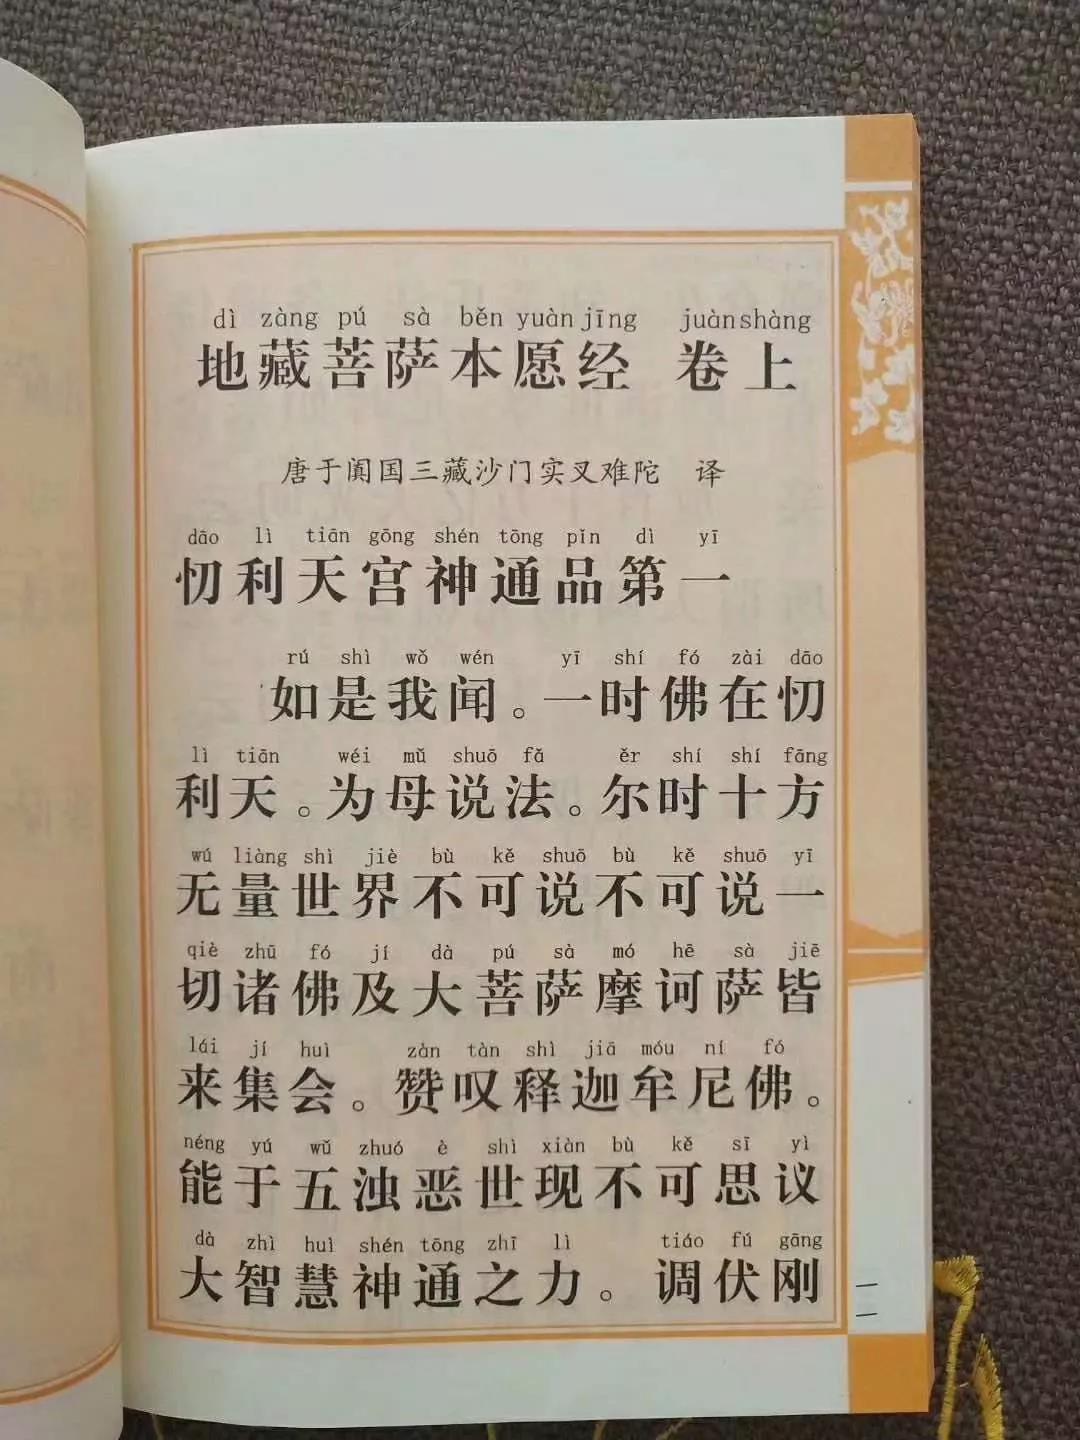 dì zàng pú sà běn yuàn jīng juàn shàng
地藏菩萨本愿经 卷上
唐于阗国三藏沙门实叉难陀 译
dāo lì tiān gōng shén tōng pǐn dì yī
忉利天宫神通品第一
rú shì wǒ wén yī shí fó zài dāo
如是我闻。一时佛在忉
lì tiān wéi mǔ shuō fǎ ěr shí shí fāng
利天。为母说法。尔时十方
wú liàng shì jiè bù kě shuō bù kě shuō yī
无量世界不可说不可说一
qiè zhū fó jí dà pú sà mó hē sà jiē
切诸佛及大菩萨摩诃萨皆
lái jí huì zàn tàn shì jiā móu ní fó
来集会。赞叹释迦牟尼佛。
néng yú wǔ zhuó è shì xiàn bù kě sī yì
能于五浊恶世现不可思议
dà zhì huì shén tōng zhī lì tiáo fú gāng
大智慧神通之力。调伏刚
一一